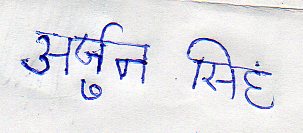 अर्जुन सिहं